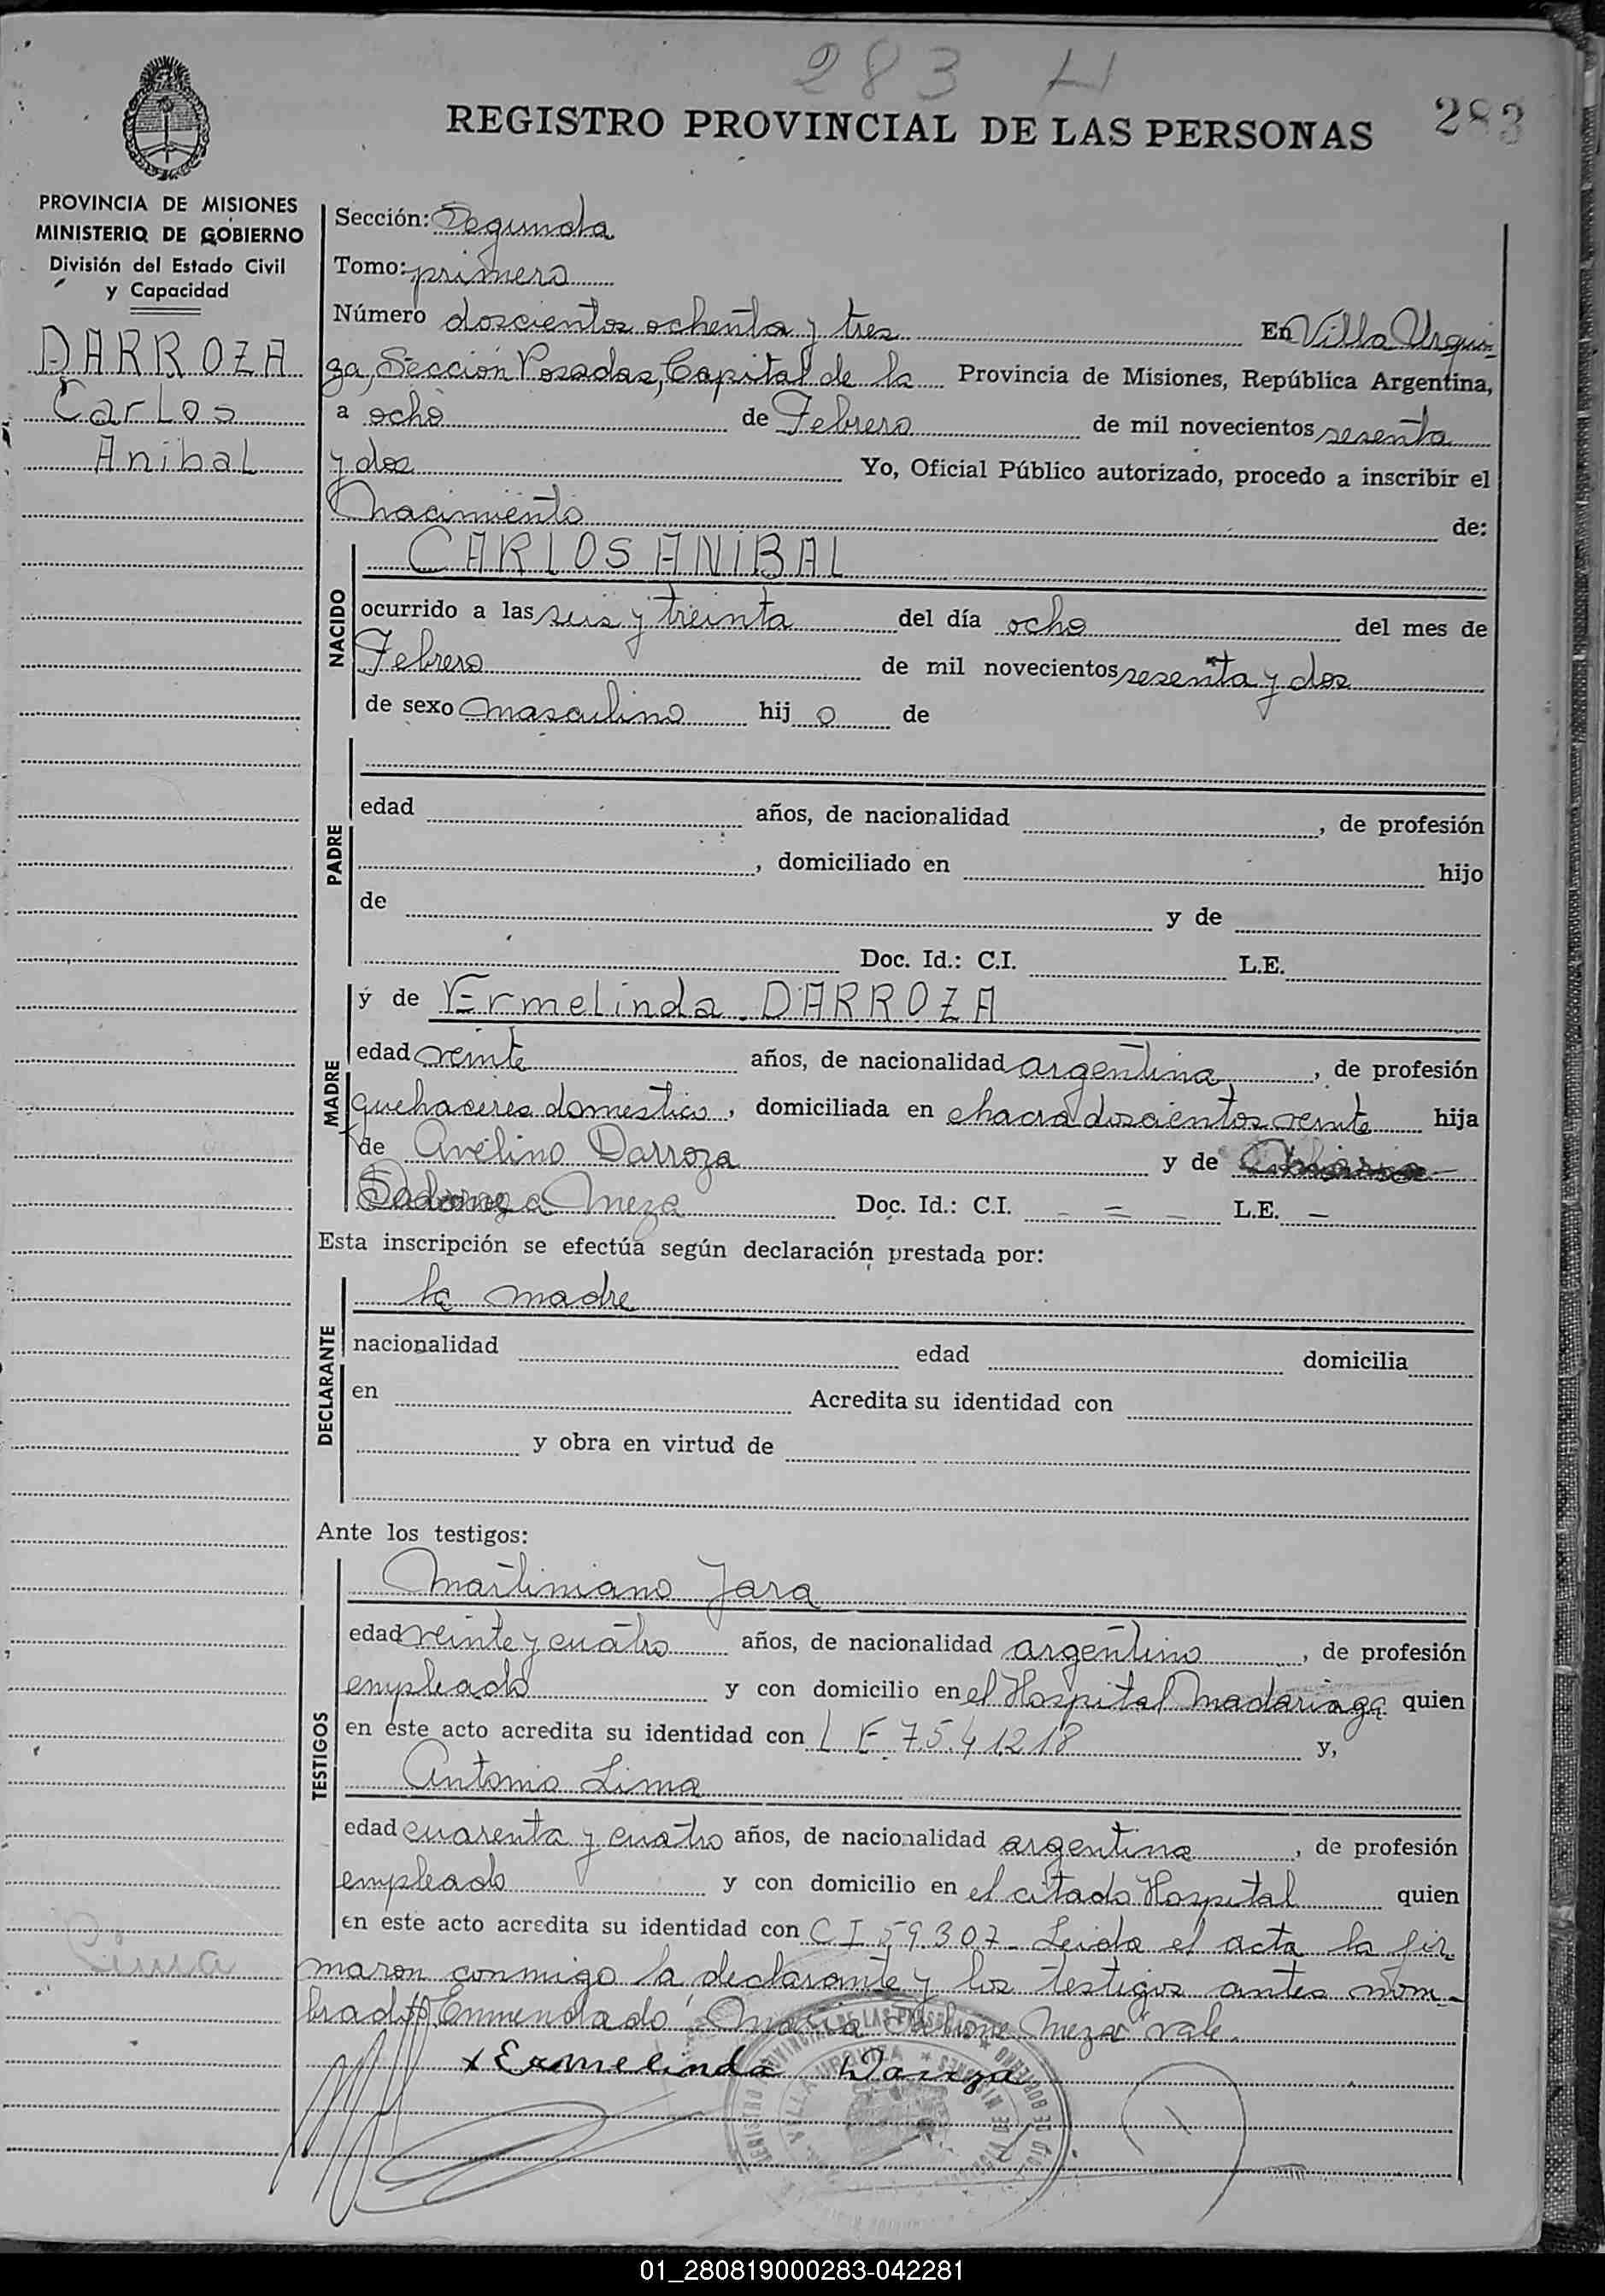 283 H
REGISTRO PROVINCIAL DE LAS PERSONAS 283
PROVINCIA DE MISIONES
MINISTERIO DE GOBIERNO
División del Estado Civil
y Capacidad
DARROZA
Carlos
Anibal
Sección: Segunda
Tomo: primero
Número doscientos ochenta y tres En Villa Urqui-
za, Sección Posadas, Capital de la Provincia de Misiones, República Argentina,
a ocho de Febrero de mil novecientos sesenta
y dos Yo, Oficial Público autorizado, procedo a inscribir el
Nacimiento de:
NACIDO
CARLOS ANIBAL
ocurrido a las seis y treinta del día ocho del mes de
Febrero de mil novecientos sesenta y dos
de sexo masculino hij o de
PADRE
edad años, de nacionalidad , de profesión
, domiciliado en hijo
de y de
Doc. Id.: C.I. L.E.
MADRE
y de Ermelinda DARROZA
edad veinte años, de nacionalidad argentina, , de profesión
quehaceres domestico , domiciliada en chacra doscientos veinte hija
de Avelino Darroza y de
Meza Doc. Id.: C.I. - = - L.E. -
Esta inscripción se efectúa según declaración prestada por:
DECLARANTE
la madre
nacionalidad edad domicilia
en Acredita su identidad con
y obra en virtud de
Ante los testigos:
TESTIGOS
Martiniano Jara
edad veinte y cuatro años, de nacionalidad argentino , de profesión
empleado y con domicilio en el Hospital Madariaga quien
en este acto acredita su identidad con L E 7.541218 y,
Antonio Lima
edad cuarenta y cuatro años, de nacionalidad argentina , de profesión
empleado y con domicilio en el citado Hospital quien
en este acto acredita su identidad con C I 59.307- Leida el acta la fir-
maron conmigo la declarante y los testigos antes nom-
brados. Enmendado: Meza vale.
x Ermelinda Daroza
Lima
VILLA URQUIZA
01_280819000283-042281